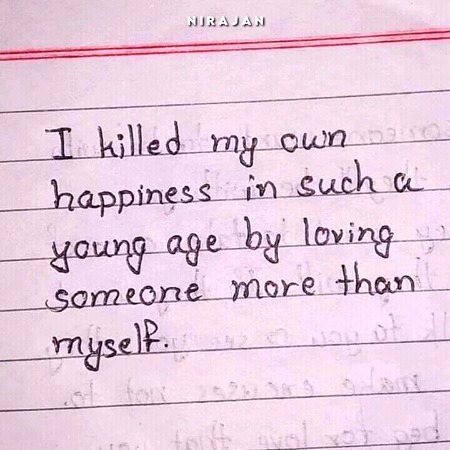 NIRAJAN
I killed my own
happiness in such a
young age by loving
someone more than
myself.